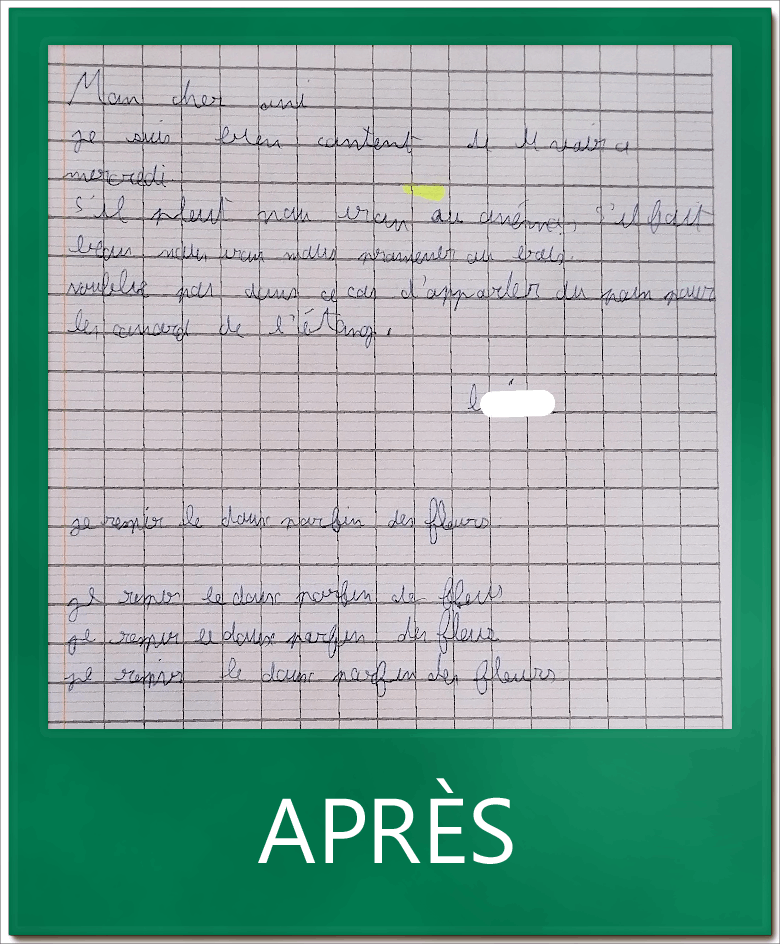 Mon cher ami
je suis bien content de te voir ce
mercredi.
S'il pleut nou iran au cinéma, s'il fait
beau nous iran nous promener au bois.
noublie pas dans ce cas d'apporter du pain pour
les canard de l'étang.
je respir le doux parfun des fleurs
je respir le doux parfun de fleurs
je respir le doux parfun des fleur
je respir le doux parfun des fleurs
APRÈS